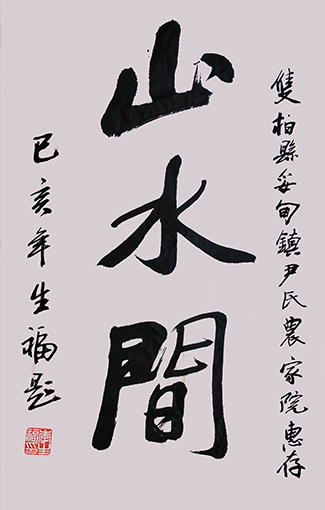 隻柏縣妥甸鎮尹氏農家院惠存
山水間
己亥年生福题